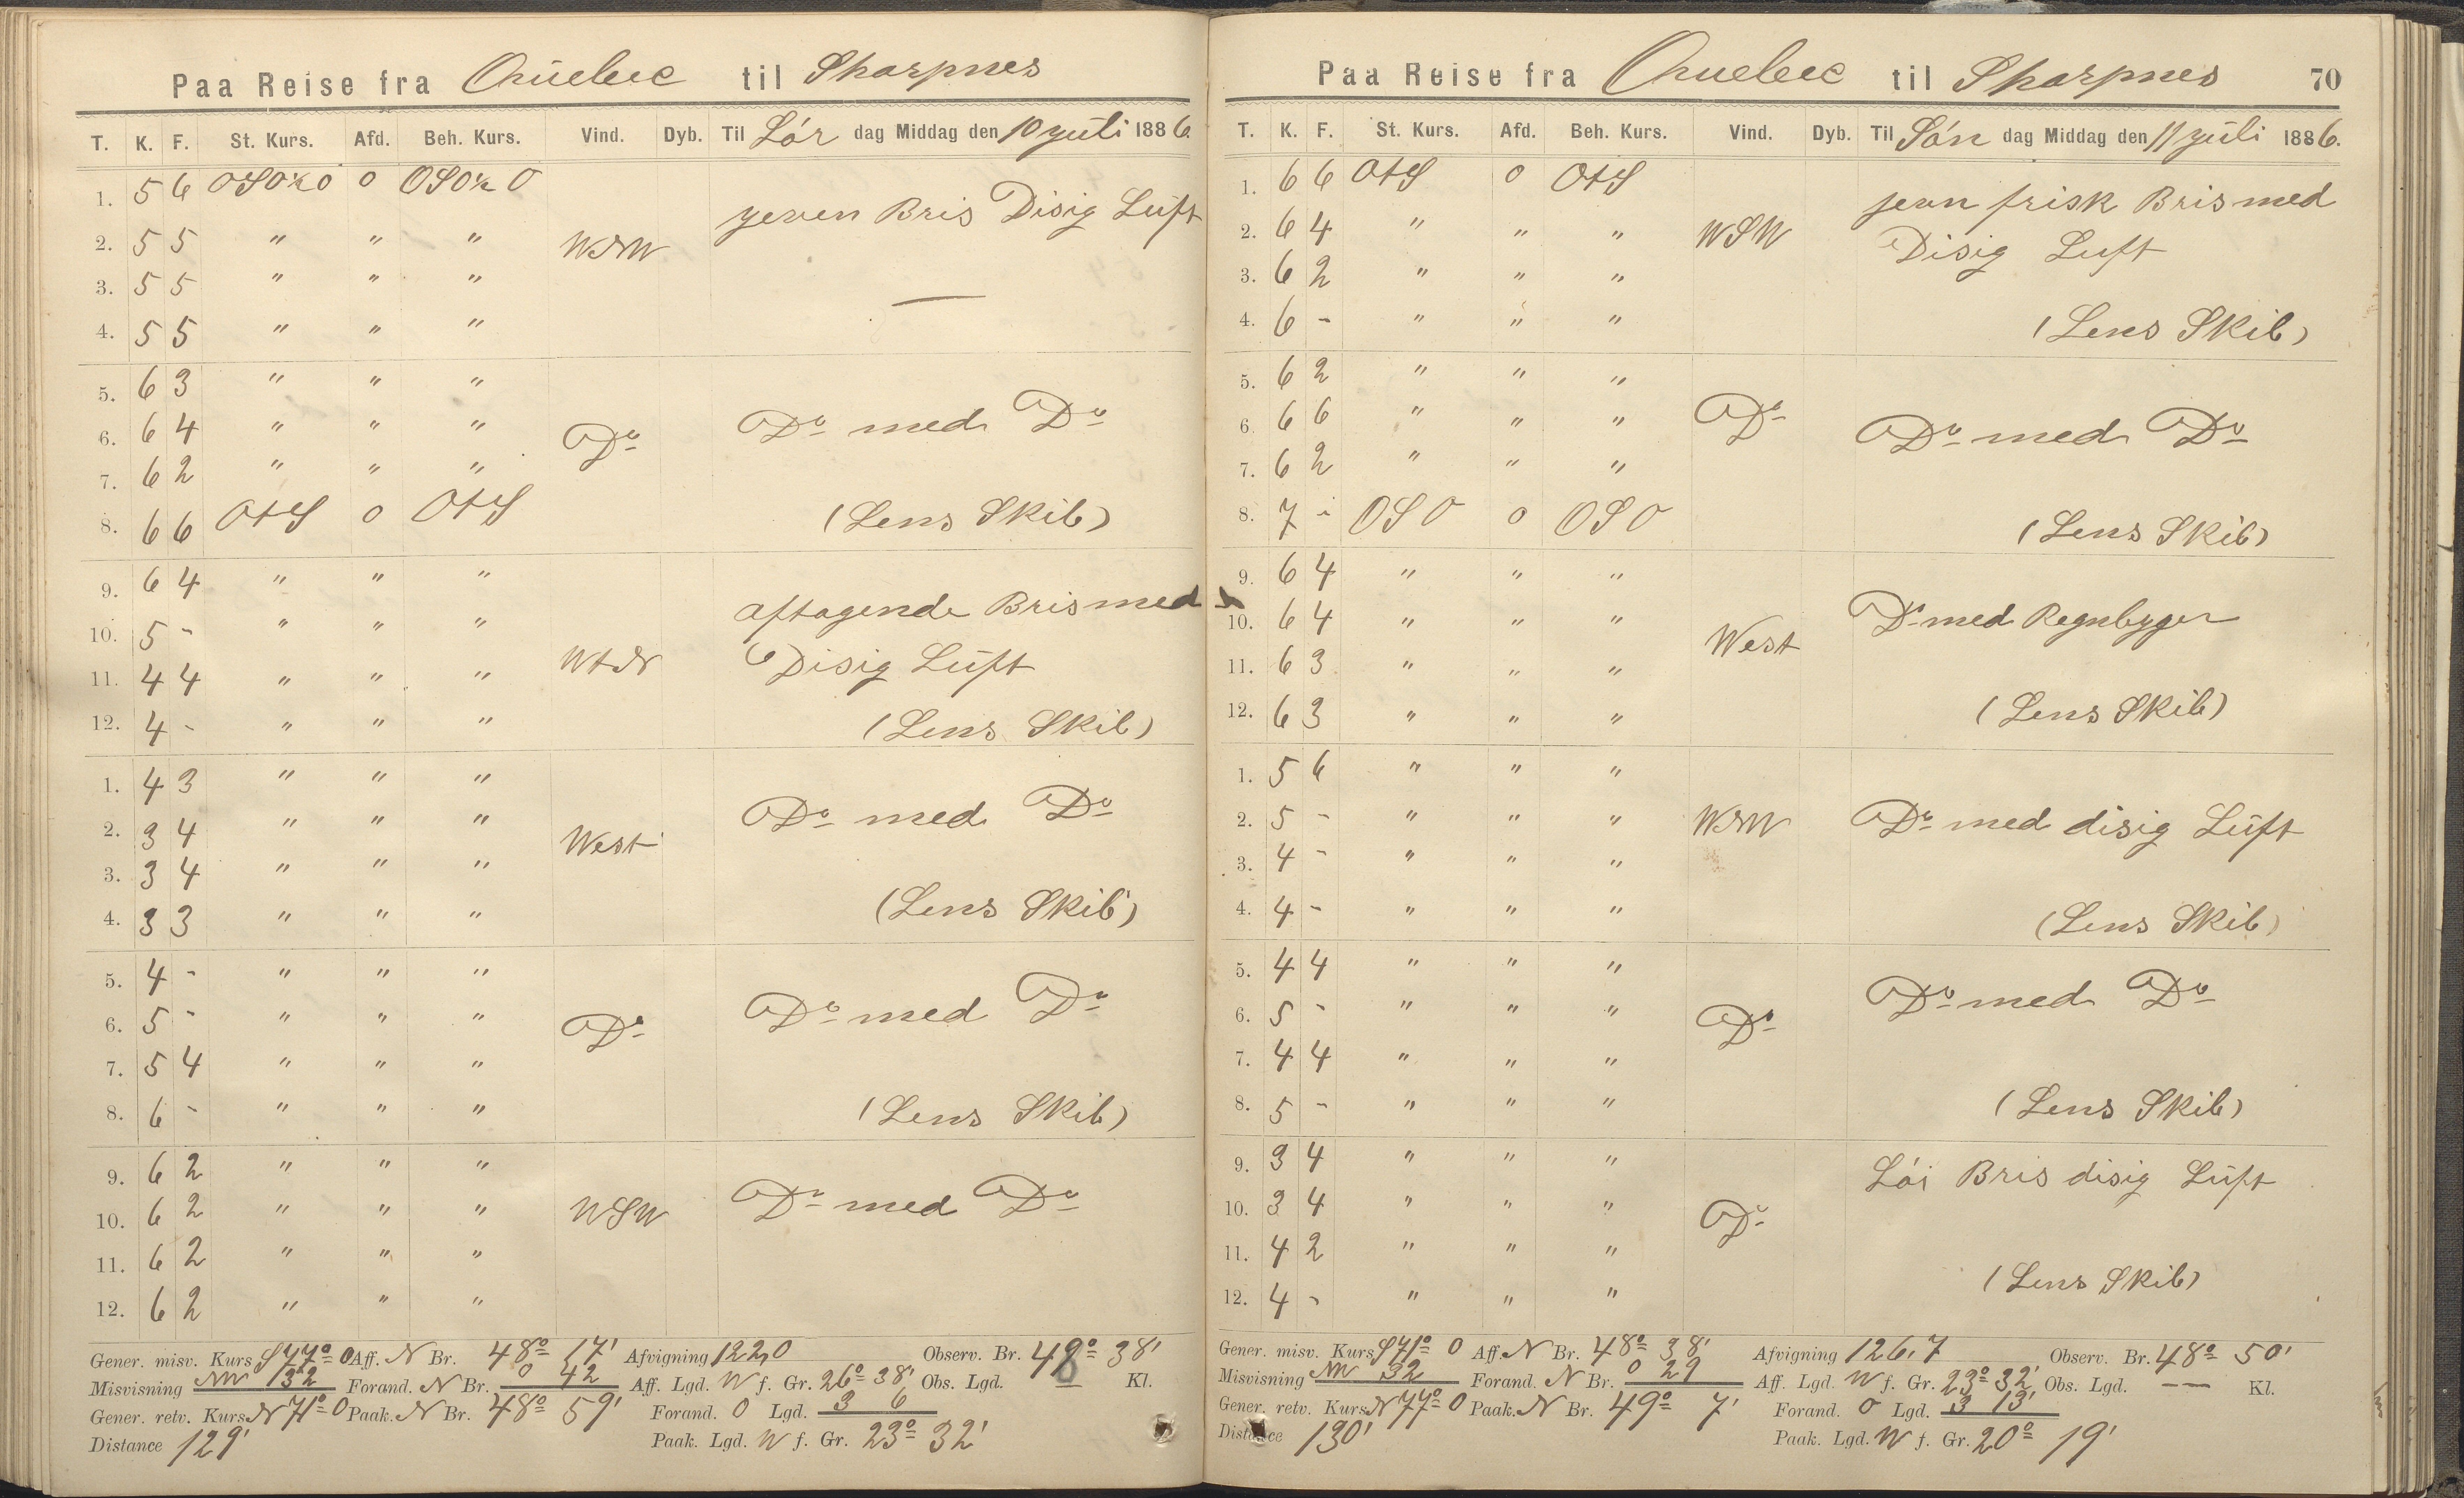 Paa Reise fra Quebec til Sharpnes
T. K. F. St. Kurs. Afd. Beh. Kurs. Vind. Dyb. Til Lör dag Middag den 10 yuli 1886.
1. 5 6 OSO½O 0 OSO½O
yeven Bris Disig Luft
2. 5 5 " " " WNW
3. 5 5 " " "
4. 5 5 " " "
5. 6 3 " " "
6. 6 4 " " " Do Do med Do
7. 6 2 " " "
8. 6 6 OtS 0 OtS (Lens Skib)
9. 6 4 " " "
aftagende Bris med
10. 5 - " " "
11. 4 4 " " " WtN Disig Luft
12. 4 - " " " (Lens Skib)
1. 4 3 " " "
2. 3 4 " " " West Do med Do
3. 3 4 " " "
4. 3 3 " " " (Lens Skib)
5. 4 - " " "
6. 5 - " " " Do Do med Do
7. 5 4 " " "
8. 6 - " " " (Lens Skib)
9. 6 2 " " "
10. 6 2 " " " WSW Do med Do
11. 6 2 " " "
12. 6 2 " " "
Gener. misv. Kurs S 77° O Aff. N Br. 48° 17' Afvigning 122,0 Observ. Br. 48° 38'
Misvisning NW 32 Forand. N Br. 0 42 Aff. Lgd. W f. Gr. 26° 38' Obs. Lgd. — Kl.
Gener. retv. Kurs N 71° O Paak. N Br. 48° 59' Forand. O Lgd. 3 6
Distance 129' Paak. Lgd. W f. Gr. 23° 32'
Paa Reise fra Quebec til Sharpnes 70
T. K. F. St. Kurs. Afd. Beh. Kurs. Vind. Dyb. Til Sön dag Middag den 11 yuli 1886.
1. 6 6 OtS 0 OtS
jevn frisk Bris med
2. 6 4 " " " WSW Disig Luft
3. 6 2 " " "
4. 6 - " " " (Lens Skib)
5. 6 2 " " "
6. 6 6 " " " Do Do med Do
7. 6 2 " " "
8. 7 - OSO 0 OSO (Lens Skib)
9. 6 4 " " "
10. 6 4 " " " West Do med Regnbyger
11. 6 3 " " "
12. 6 3 " " " (Lens Skib)
1. 5 6 " " "
2. 5 - " " " WNW Do med disig Luft
3. 4 - " " "
4. 4 - " " " (Lens Skib)
5. 4 4 " " "
6. 5 - " " " Do Do med Do
7. 4 4 " " "
8. 5 - " " " (Lens Skib)
9. 3 4 " " " Löi Bris disig Luft
10. 3 4 " " " Do
11. 4 2 " " "
12. 4 - " " " (Lens Skib)
Gener. misv. Kurs S 71° O Aff. N Br. 48° 38' Afvigning 126,7 Observ. Br. 48° 50'
Misvisning NW 32 Forand. N Br. 0 29 Aff. Lgd. W f. Gr. 23° 32' Obs. Lgd. — Kl.
Gener. retv. Kurs N 77° O Paak. N Br. 49° 7' Forand. O Lgd. 3 13'
Distance 130' Paak. Lgd. W f. Gr. 20° 19'